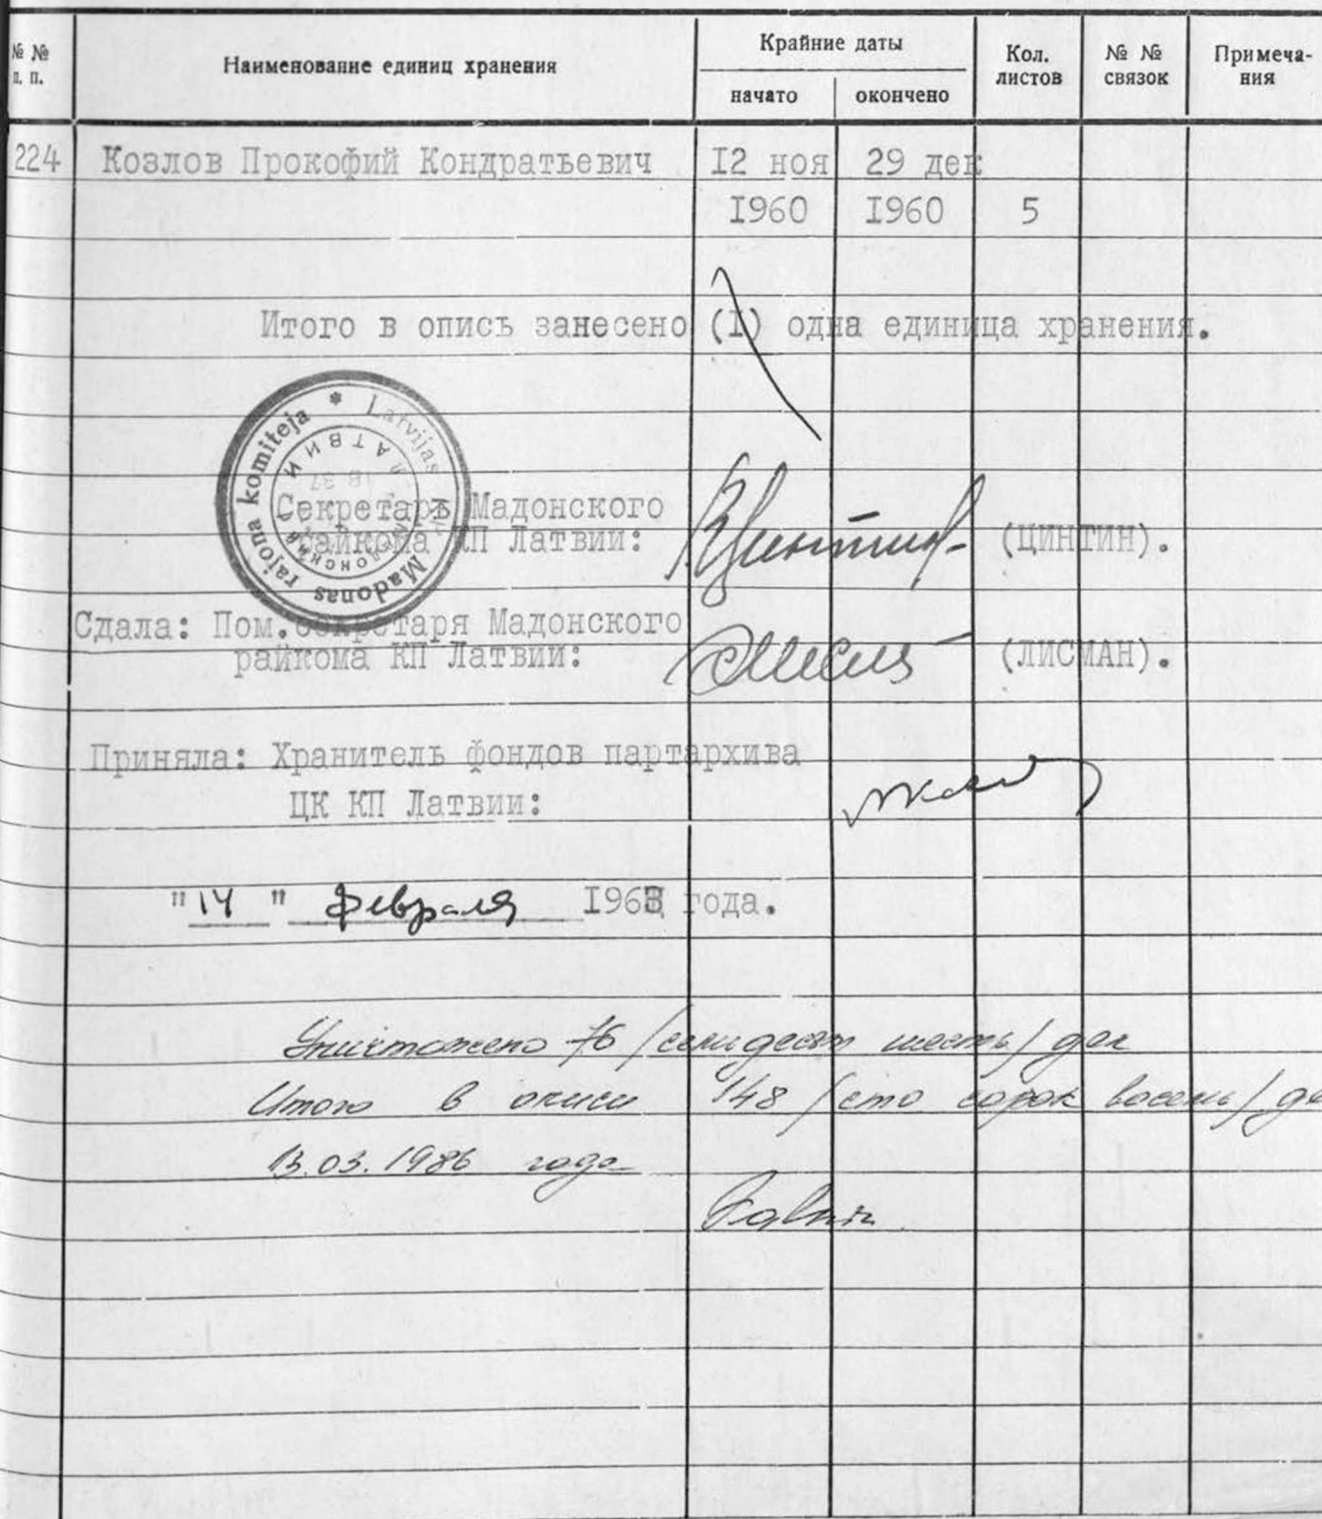 № № п. п.
Наименование единиц хранения
Крайние даты
начато
окончено
Кол. листов
№ № связок
Примеча-
ния
224 Козлов Прокофий Кондратьевич 12 ноя 29 дек
I960 I960 5
Итого в опись занесено (I) одна единица хранения.
Latvijas
Madonas rajona komiteja *
Секретарь Мадонского
райкома КП Латвии: (ЦИНТИН).
Сдала: Пом.секретаря Мадонского
райкома КП Латвии: (ЛИСМАН).
Приняла: Хранитель фондов партархива
ЦК КП Латвии:
"14" февраля года.
Уничтожено 76 /семидесят шесть/ дел
Итого в описи 148 /сто сорок восемь/ де
13.03.1986 года